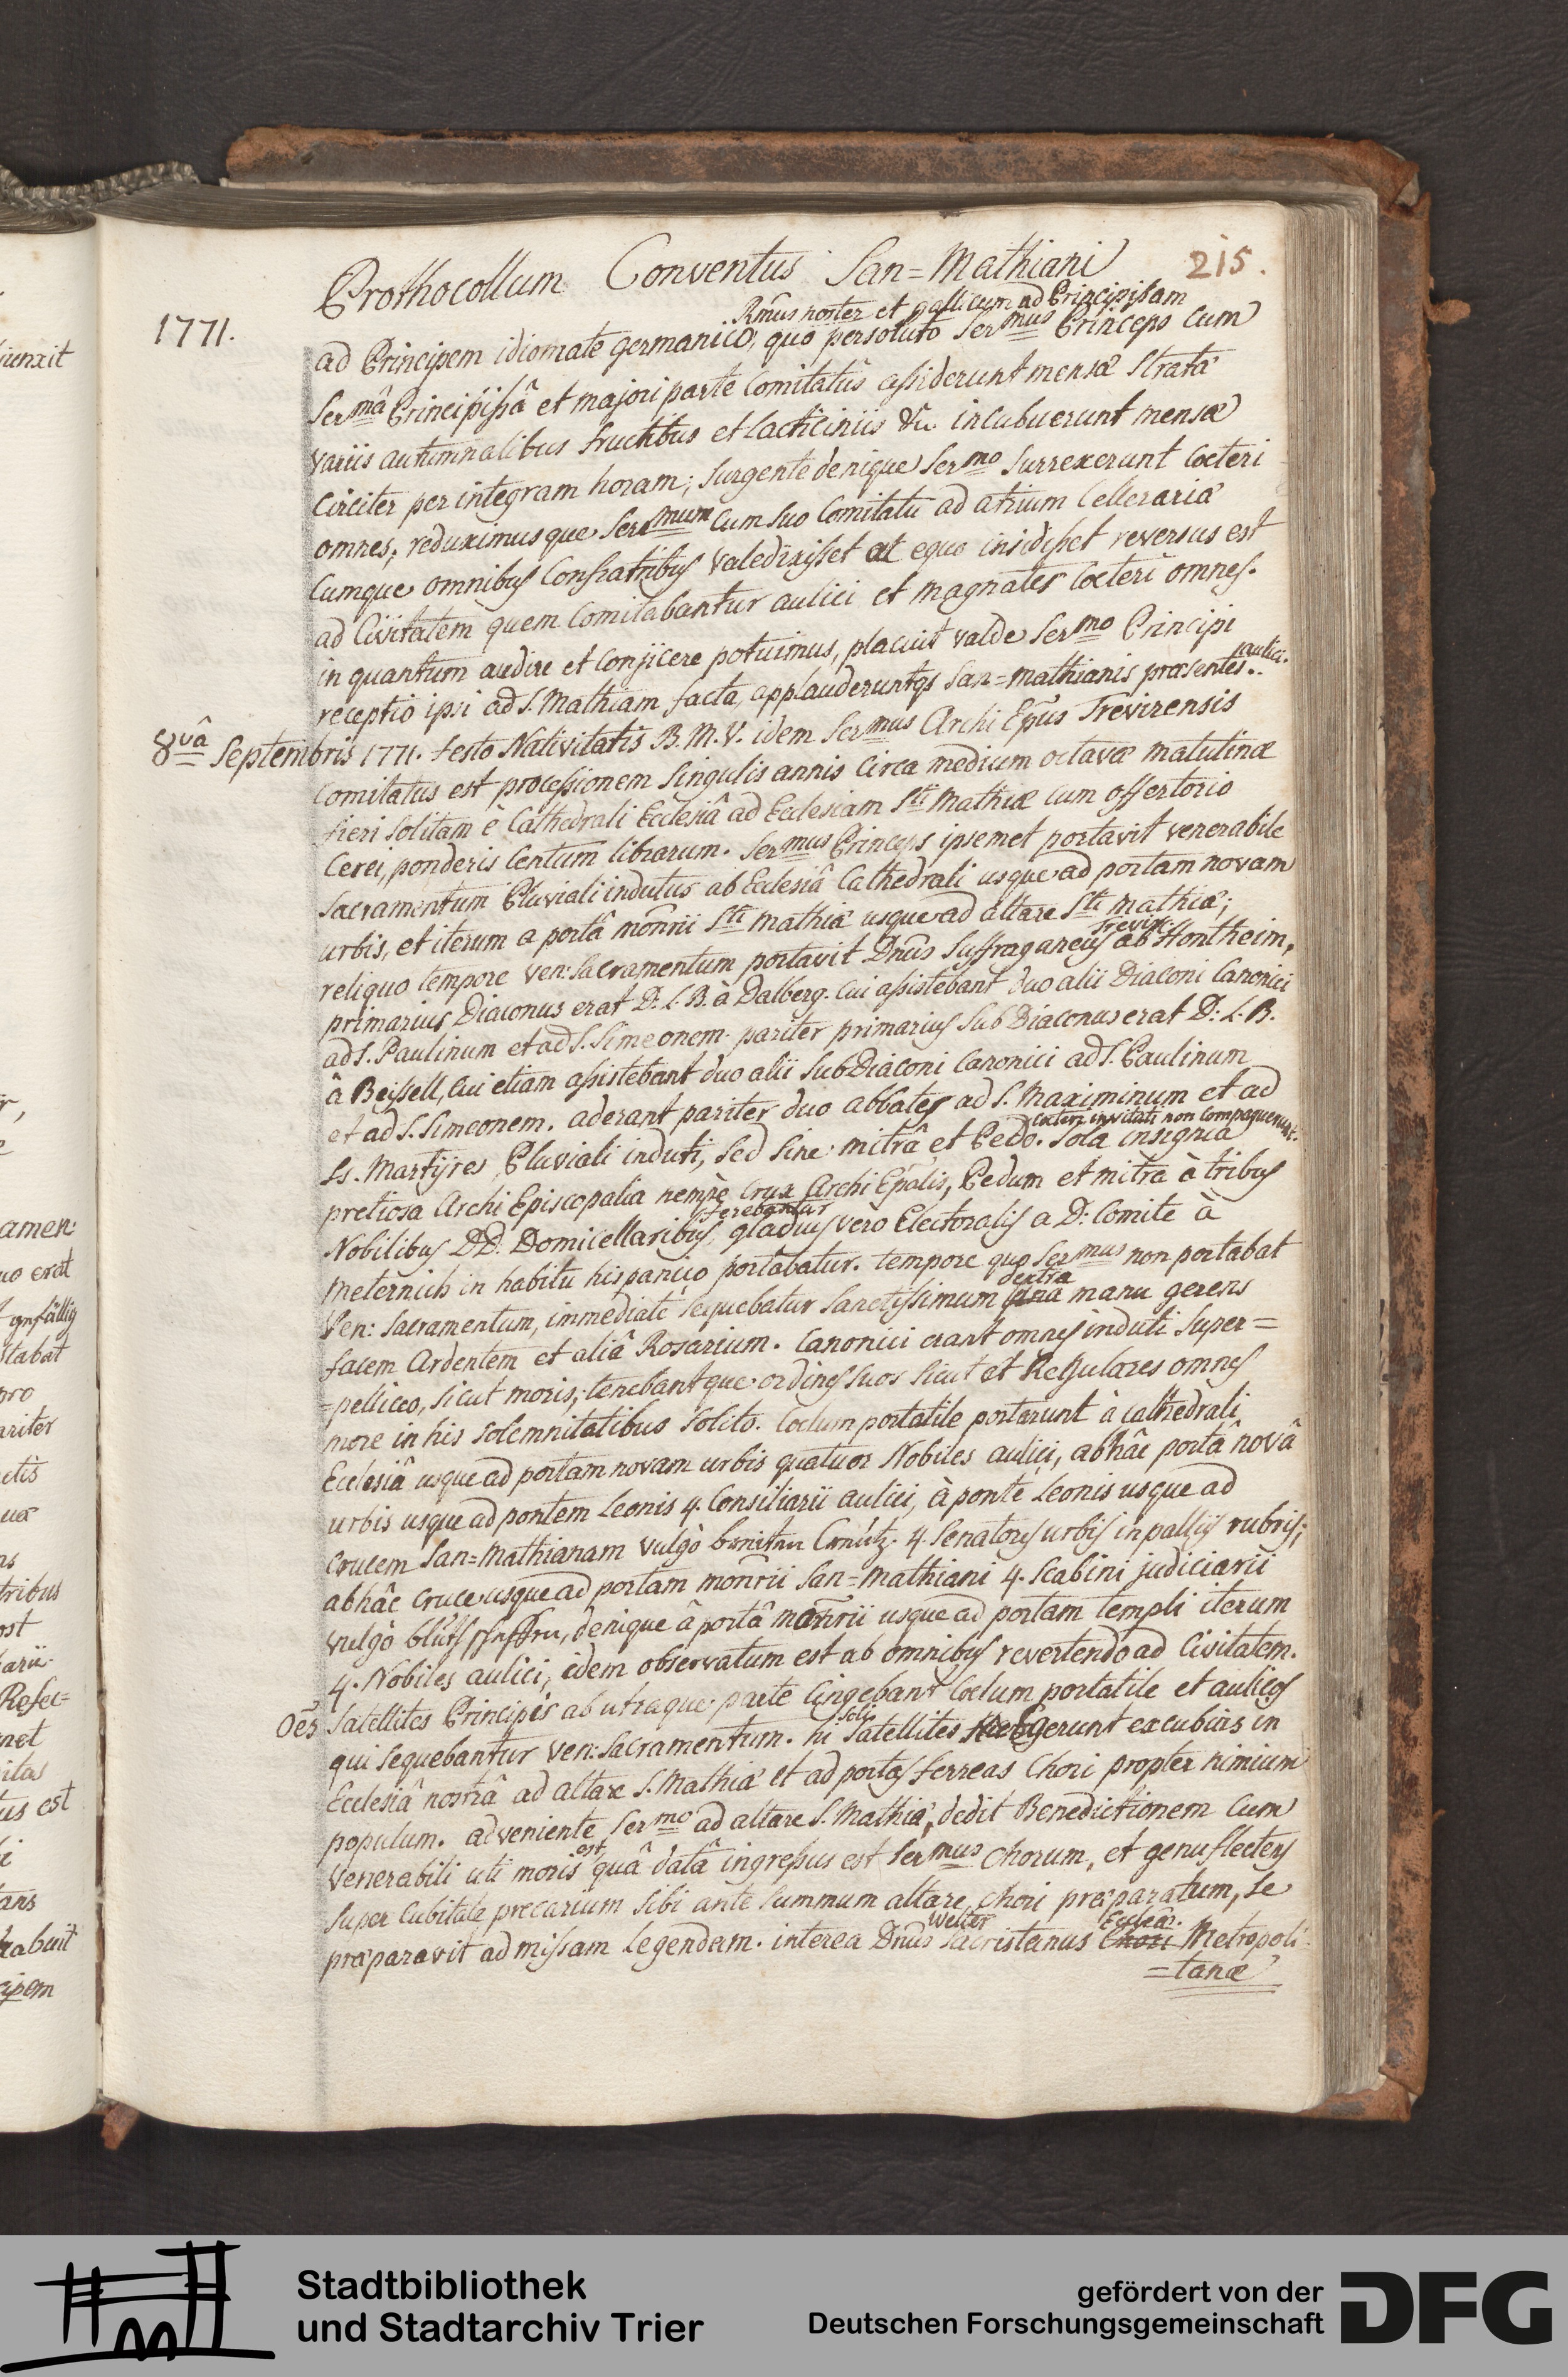 Prothocollum Conventus San=Mathiani 215.
1771.
Rm̃us noster et gallicum ad Principissam
ad Principem idiomate germanico, quo persoluto Ser<sup>mus</sup> Princeps cum
Ser<sup>mâ</sup> Principissâ et majori parte Comitatûs assiderunt mensæ Stratæ
variis autumnalibus fructibus et lacticiniis &c incubuerunt mensæ
Circiter per integram horam; Surgente denique Ser<sup>mo</sup> Surrexerunt Cœteri
omnes, reduximusque Ser<sup>mum</sup> Cum Suo Comitatu ad atrium Cellerariæ
Cumque omnibus Confratribus Valedixisset et equo insidisset reversus est
ad Civitatem quem Comitabantur aulici et magnates Cœteri omnes.
in quantum audire et Conjicere potuimus, placuit valde Ser<sup>mo</sup> Principi
receptio ipsi ad S. Mathiam facta, applauderuntqs San=mathianis præsentes aulici.
8<sup>vâ</sup> Septembris 1771. festo Nativitatis B. M. V. idem Ser<sup>mus</sup> Archi Ep̃us Trevirensis
Comitatus est processionem Singulis annis Circa medium octavæ matutinæ
fieri Solitam è Cathedrali Ecclesiâ ad Ecclesiam S<sup>ti</sup> Mathiæ cum offertorio
Cerei, ponderis Centum librarum. Ser<sup>mus</sup> Princeps ipsemet portavit venerabile
Sacramentum Pluviali indutus ab Ecclesiâ Cathedrali usque ad portam novam
urbis, et iterum a portâ moñrii S<sup>ti</sup> Mathiæ usque ad altare S<sup>ti</sup> Mathiæ;
reliquo tempore ven: Sacramentum portavit Dñus Suffraganeus Trevir: ab Hontheim,
primarius Diaconus erat D: L. B. à Dalberg. Cui assistebant duo alii Diaconi Canonici
ad S. Paulinum et ad S. Simeonem. pariter primarius SubDiaconus erat D: L. B.
â Beissell, Cui etiam assistebant duo alii SubDiaconi Canonici ad S. Paulinum
et ad S. Simeonem. aderant pariter duo abbates ad S. Maximinum et ad
Cœteri invitati non Comparuerunt.
Ss. Martyres Pluviali induti, Sed Sine mitrâ et Pedo. Sola insignia
pretiosa Archi Episcopalia nempè Crux Archi Ep̃alis, Pedum et mitra à tribus
Nobilibus DD. Domicellaribus ferebantur, gladius vero Electoralis a D: Comite à
Meternich in habitu hispanico portabatur. tempore quo Ser<sup>mus</sup> non portabat
Ven: Sacramentum, immediatè Sequebatur Sanctissimum dextra manu gerens
facem Ardentem et aliâ Rosarium. Canonici erant omnes induti Super=
=pelliceo, Sicut moris; tenebantque ordines Suos Sicut et Regulares omnes
more in his Solemnitatibus Solito. Cœlum portatile portarunt à Cathedrali
Ecclesiâ usque ad portam novam urbis quatuor Nobiles aulici, ab hâc portâ novâ
urbis usque ad pontem Leonis 4. Consiliarii aulici, à ponte Leonis usque ad
Crucem San=Mathianam vulgò Creütz. 4. Senatores urbis in palliis rubris;
ab hâc Cruce usque ad portam moñrii San=Mathiani 4. Scabini judiciarii
vulgò blûts Scheffen, denique â portâ moñrii usque ad portam templi iterum
4. Nobiles aulici, idem observatum est ab omnibus revertendo ad Civitatem.
Oẽs Satellites Principis ab utraque parte Cingebant Cœlum portatile et aulicos
qui Sequebantur Ven: Sacramentum. hi soli Satellites egerunt excubias in
Ecclesiâ nostrâ ad altare S. Mathiæ et ad portas ferreas Chori propter nimium
populum. adveniente Ser<sup>mo</sup> ad altare S. Mathiæ, dedit Benedictionem Cum
Venerabili uti moris est, quâ datâ ingressus est Ser<sup>mus</sup> Chorum, et genuflectens
Super Cubitale precarium Sibi ante Summum altare Chori præparatum, Se
præparavit ad missam Legendam. interea Dñus Welter Sacristanus Chori Eccleæ. Metropoli
=tanæ
Stadtbibliothek
und Stadtarchiv Trier
gefördert von der
Deutschen Forschungsgemeinschaft
DFG